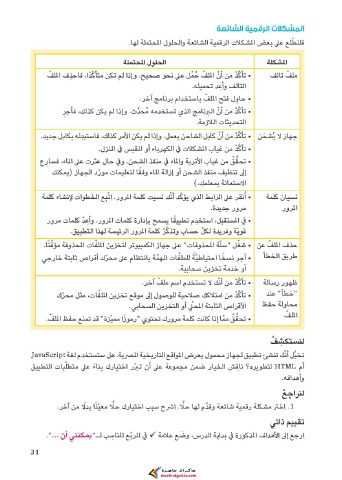 المشكلات الرقمية الشائعة
فلنطّلع على بعض المشكلات الرقمية الشائعة والحلول المحتملة لها.
المشكلة
الحلول المحتملة
ملفّ تالف
• تأكّدْ من أنّ الملفّ حُمِّل على نحو صحيح. وإذا لم تكن متأكّدًا، فاحذِف الملفّ
التالف وأعد تحميله.
• حاول فتح الملفّ باستخدام برنامج آخر.
• تأكّدْ من أنّ البرنامج الذي تستخدمه مُحدَّث. وإذا لم يكن كذلك، فأجرِ
التحديثات اللازمة.
جهاز لا يُشحَن
• تأكّدْ من أنّ كابل الشاحن يعمل. وإذا لم يكن الأمر كذلك، فاستبدله بكابل جديد.
• تأكّدْ من غياب المشكلات في الكهرباء أو القبس في المنزل.
• تحقّقْ من غياب الأتربة والماء في منفذ الشحن. وفي حال عثرت على الماء، فسارع
إلى تنظيف منفذ الشحن أو إزالة الماء وفقًا لتعليمات مورّد الجهاز (يمكنك
الاستعانة بمعلمك.)
نسيان كلمة
المرور
• اُنقر على الرابط الذي يؤكّد أنّك نسيت كلمة المرور. اِتّبِع الخطوات لإنشاء كلمة
مرور جديدة.
• في المستقبل، استخدم تطبيقًا يسمح بإدارة كلمات المرور. وأعِدّ كلمات مرور
قويّة وفريدة لكلّ حساب وتذكّرْ كلمة المرور الرئيسة لهذا التطبيق.
حذف الملفّ عن
طريق الخطأ
• شغّل "سلّة المحذوفات" على جهاز الكمبيوتر لتخزين الملفّات المحذوفة مؤقّتًا.
• أجرِ نسخًا احتياطيًّا للملفّات المهمّة بانتظام على محرّك أقراص ثابتة خارجي
أو خدمة تخزين سحابية.
ظهور رسالة
"خطأ" عند
محاولة حفظ
الملفّ
• تأكّدْ من أنّك لا تستخدم اسم ملفّ آخر.
• تأكّدْ من امتلاكك صلاحية للوصول إلى موقع تخزين الملفّات، مثل محرّك
الأقراص الثابتة المحلّي أو التخزين السحابي.
• تحقّقْ ممّا إذا كانت كلمة مرورك تحتوي "رموزًا مميّزة" قد تمنع حفظ الملفّ.
لنستكشِفْ
تخيّل أنّك تنشئ تطبيق لجهاز محمول يعرض المواقع التاريخية المصرية. هل ستستخدم لغة JavaScript
أم HTML لتطويره؟ ناقش الخيار ضمن مجموعة على أن تبرّر اختيارك بناءً على متطلّبات التطبيق
وأهدافه.
لنراجِعْ
1. اِختَر مشكلة رقمية شائعة وقدّم لها حلًّا. اِشرح سبب اختيارك حلًّا معيّنًا بدلًا من آخر.
تقييم ذاتي
اِرجع إلى الأهداف المذكورة في بداية الدرس، وضع علامة ✓ في المربّع المناسب لـ..."يمكنني أن ...".
31
مذكرات جاهزة